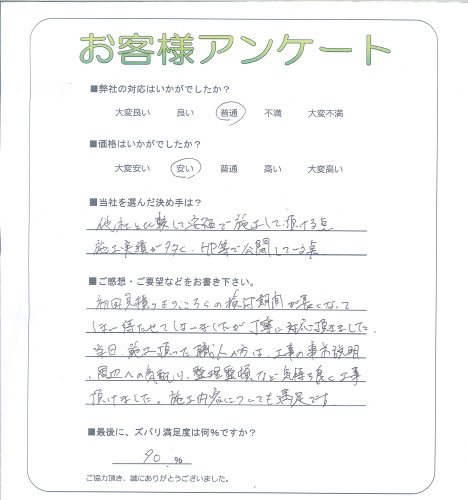 お客様アンケート
■弊社の対応はいかがでしたか？
大変良い 良い 普通 不満 大変不満
■価格はいかがでしたか？
大変安い 安い 普通 高い 大変高い
■当社を選んだ決め手は？
他社と比較して安価で施工して頂ける点
施工実績が多く、HP等で公開している点
■ご感想・ご要望などをお書き下さい。
初回見積りよりこちらの検討期間が長くなって
しまい待たせてしまいましたが丁寧に対応頂きました。
当日、施工頂いた職人の方は、工事の事前説明
、周辺への気配り、整理整頓など気持ち良く工事
頂けました。施工内容についても満足です
■最後に、ズバリ満足度は何％ですか？
90 ％
ご協力頂き、誠にありがとうございました。